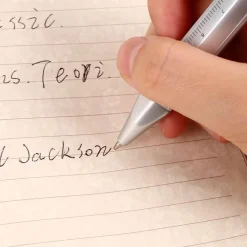 ssic.
us. Teori.
l Jackson